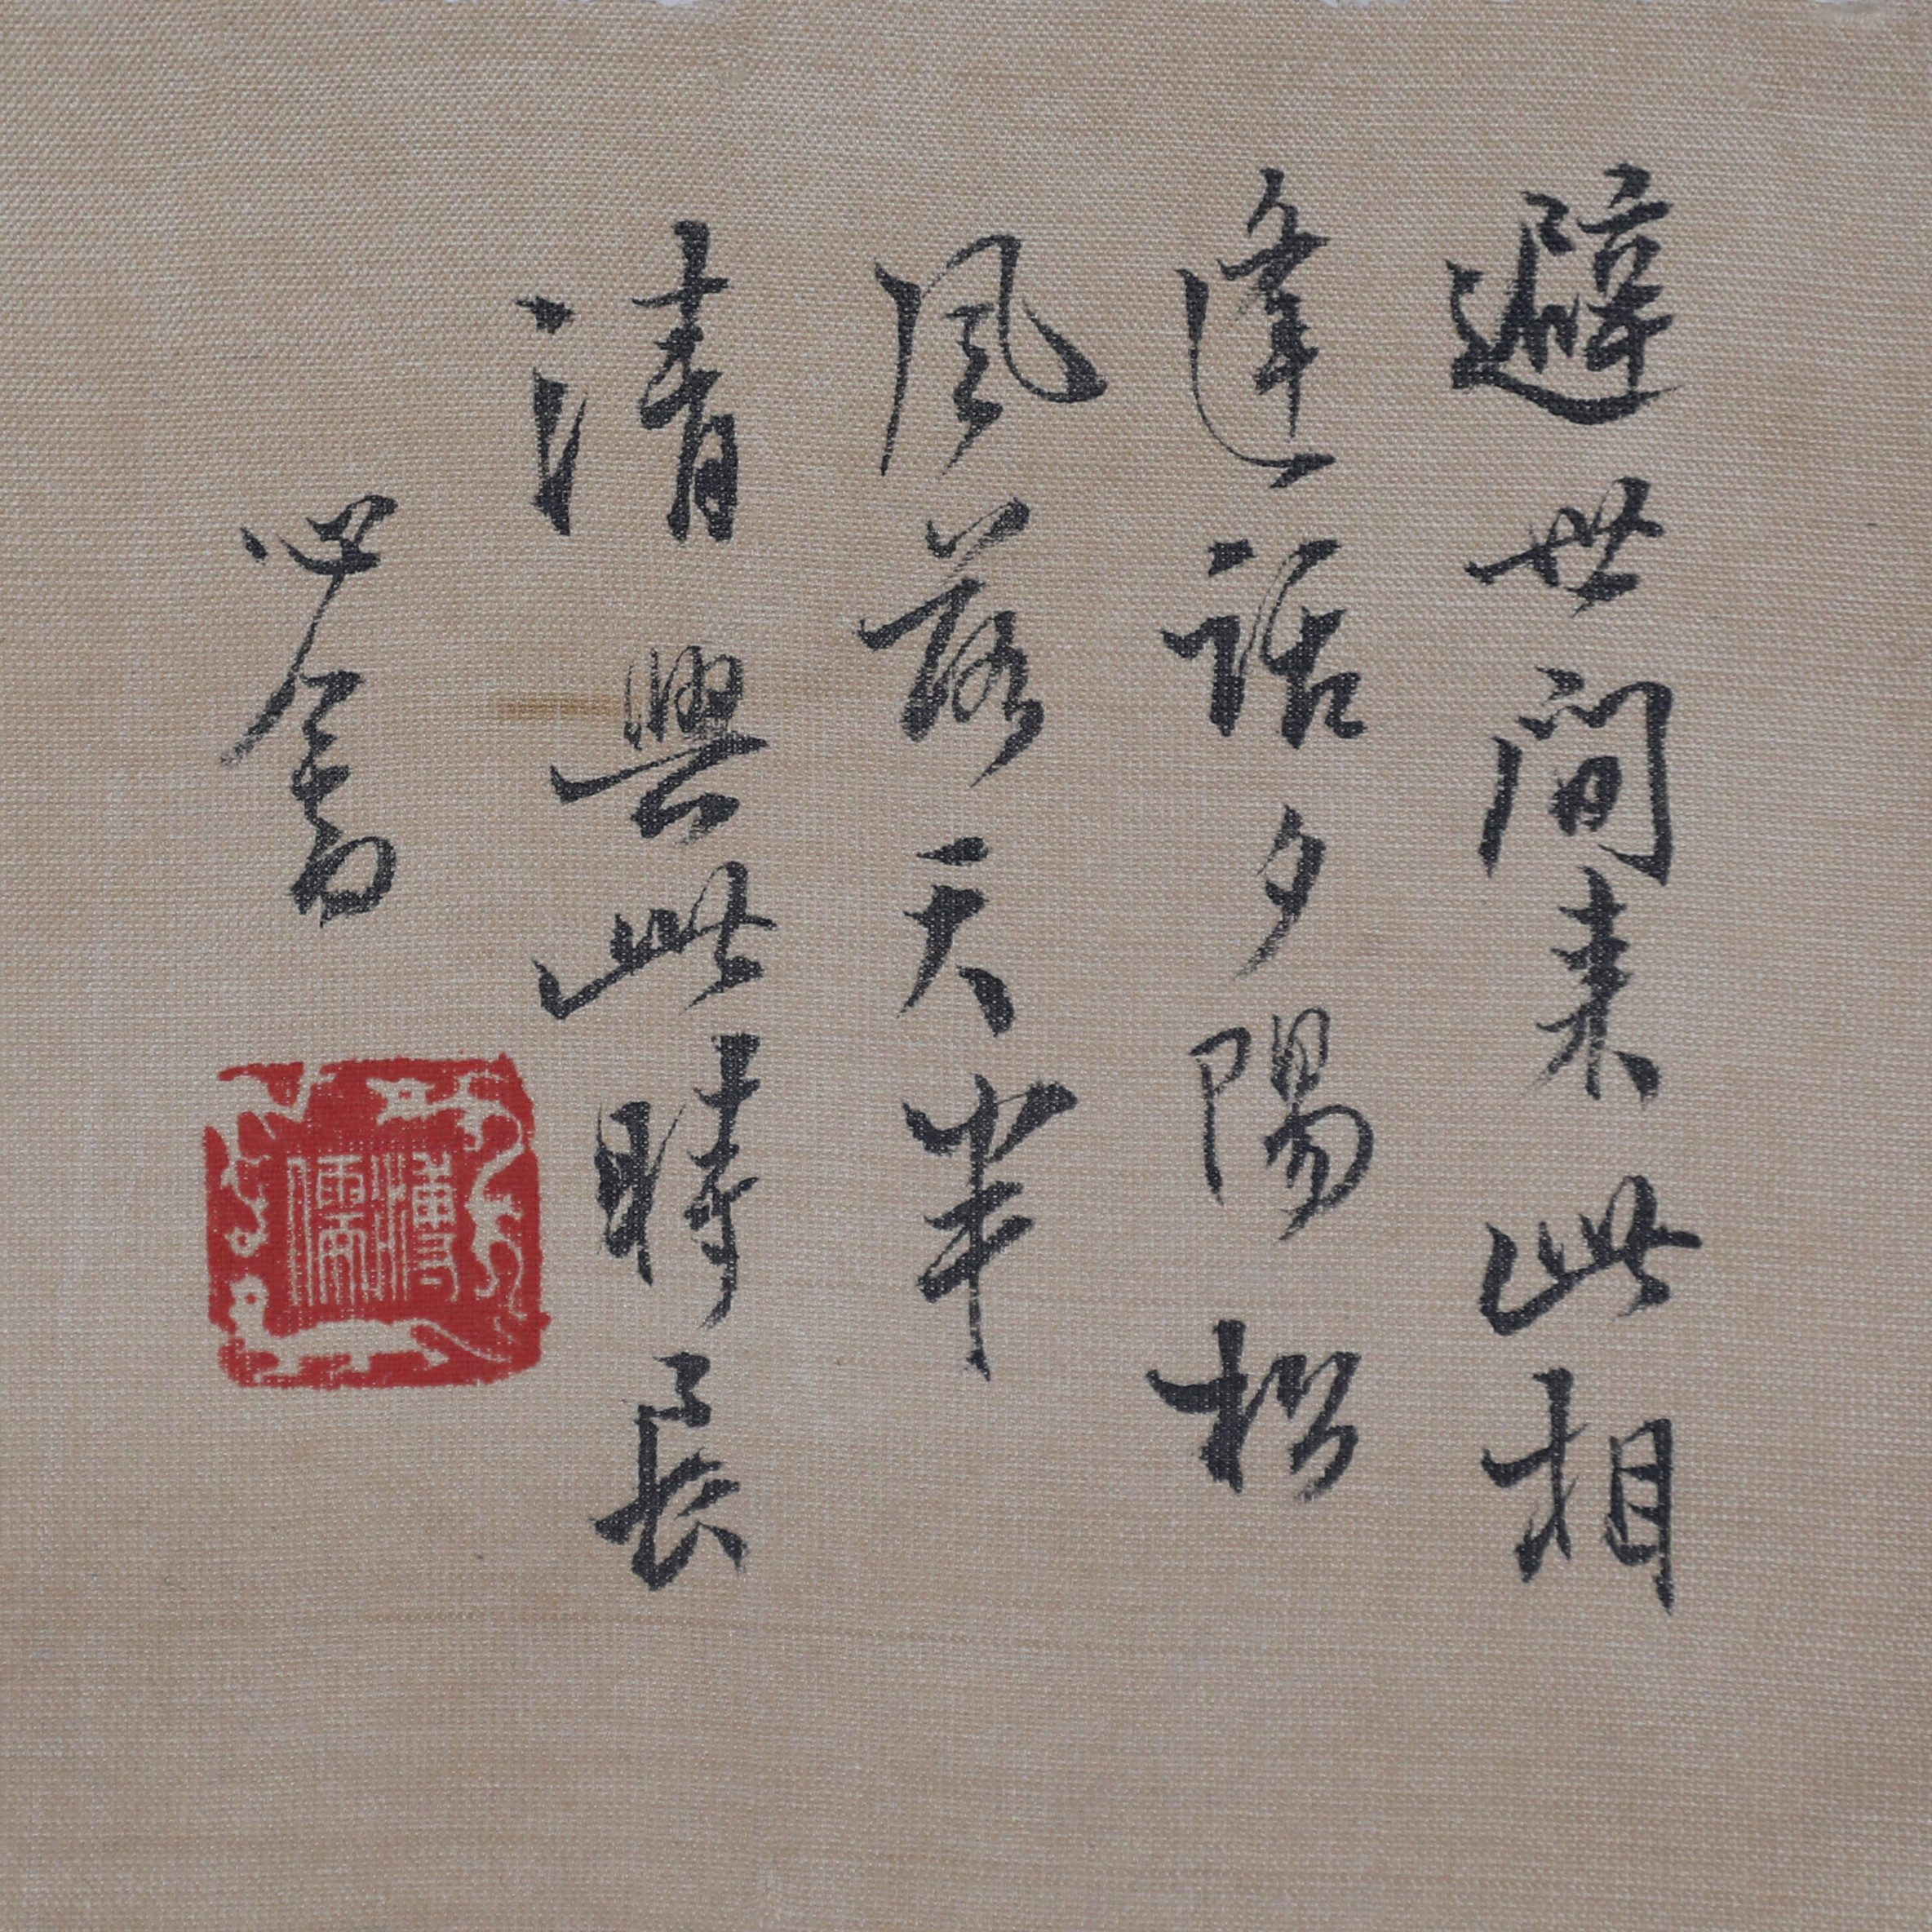 避世间来此相
逢話夕陽松
風落天半
清興此時長
心畬
溥儒